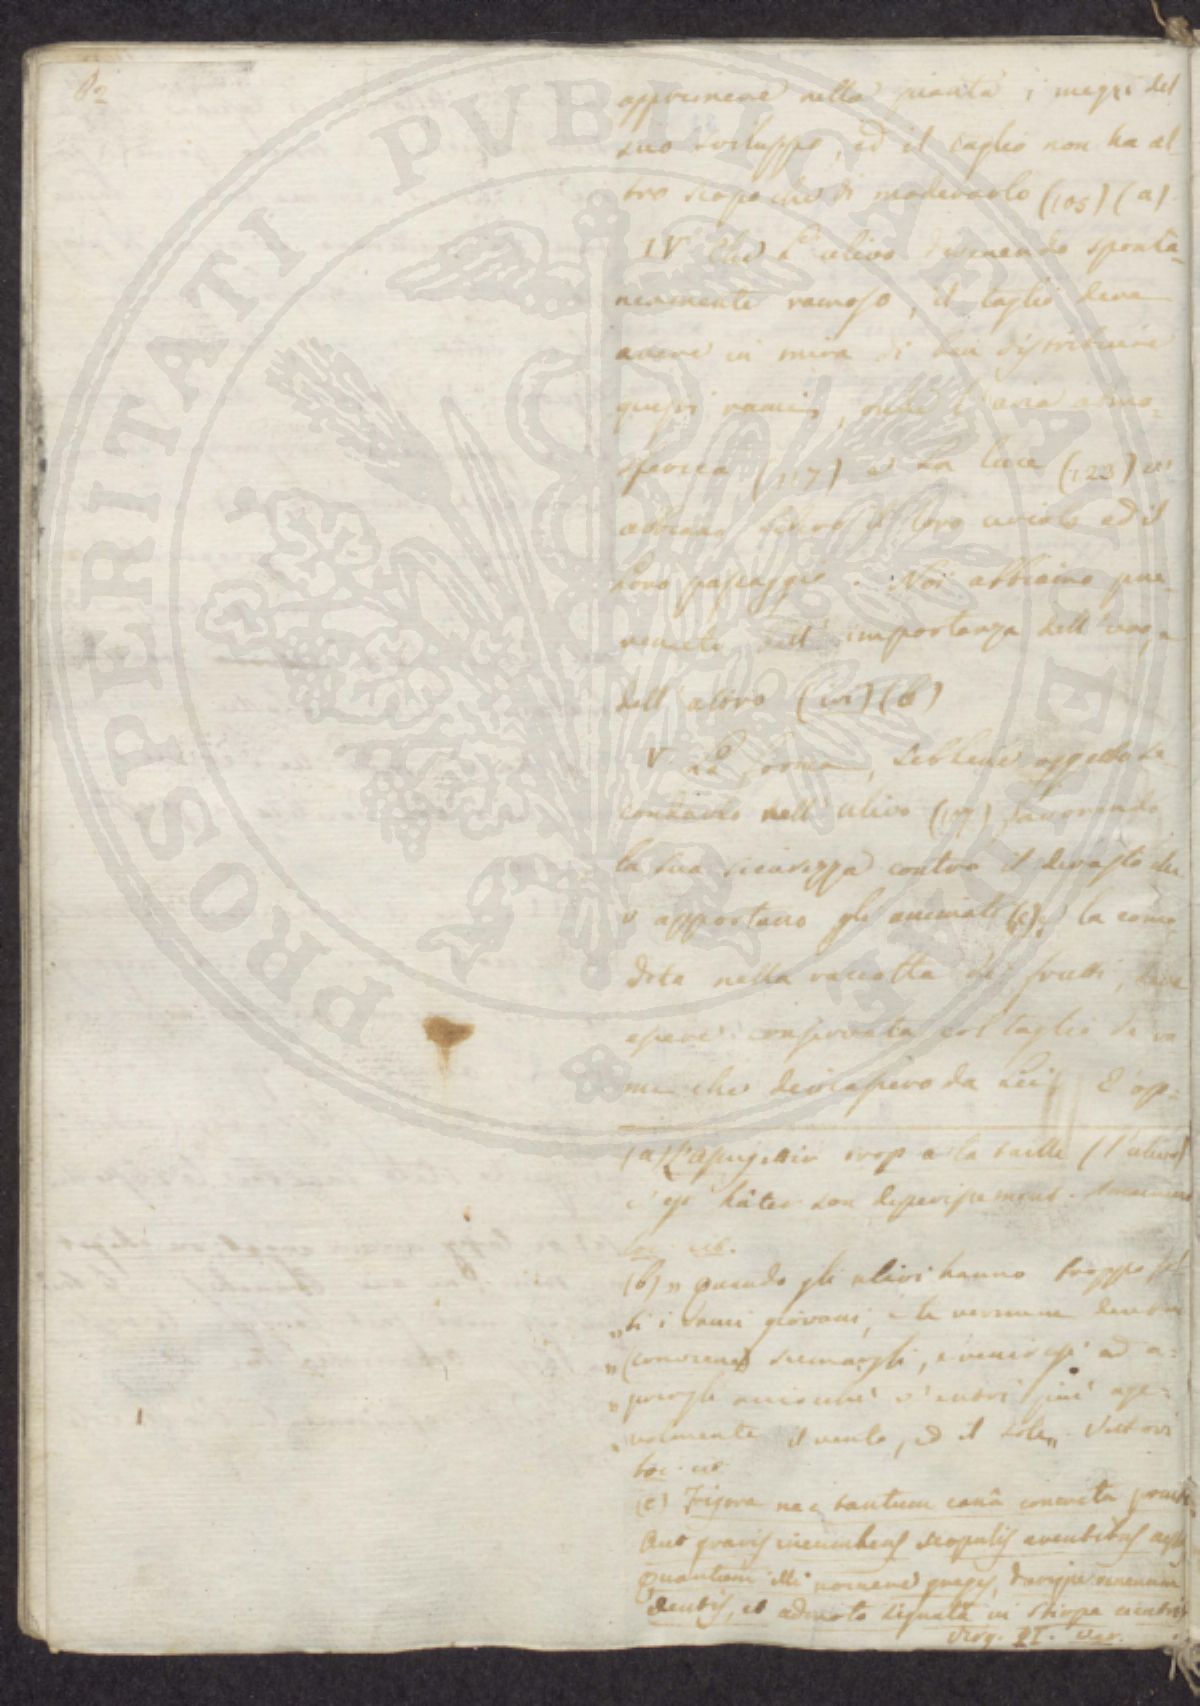 82
opprimere nella pianta i mezzi del
suo sviluppo, ed il taglio non ha al-
tro scopo che di moderarlo (105) (a)
IV Che l'ulivo divenendo sponta-
neamente ramoso, il taglio deve
avere in mira di ben distribuire
questi rami, onde l'aria atmo-
sferica (117) e la luce (123) vi
abbiano libero il loro circolo ed il
loro passaggio. Noi abbiamo pre-
venuto dell'importanza dell'uno, e
dell'altro (ivi) (b)
V La forma, sebbene oggetto se
condario nell'ulivo (107) favorendo
la sua sicurezza contro il devasto che
v'apportano gli animali (c), e la como
dità nella raccolta de' frutti, deve
essere conservata col taglio di ra
mi che deviassero da lei. E' op-
(a) L'assujettir trop a la taille (l'ulivo)
c'est hâter son deperissement.
loc. cit.
(b) „ Quando gli ulivi hanno troppo fol
„ ti i rami giovani, e le vermene
„ (conviene) scemargli, e venir
„ purogli acciocchè v'entri più age-
„ volmente il vento, ed il sole„ Vettori
loc. cit.
(c) Frigora nec tantum canâ concreta pruinâ
Aut gravis incumbens scopulis arentibus aestas
Quantum illi nocuere greges, durique venenum
Dentis, et admorso signata in stirpe cicatrix
Virg. II. Geor.
PROSPERITATI PUBLICAE AUGENDAE